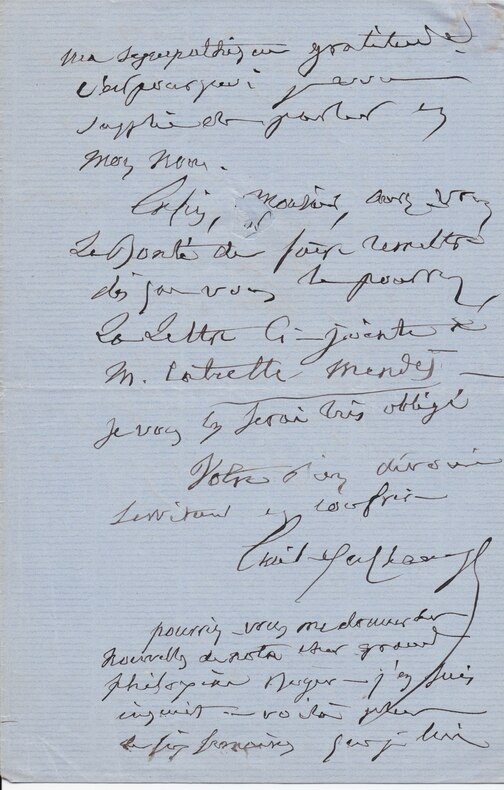 ma sympathique gratitude
c'est pourquoi je vous
supplie de parler en
mon nom.
Enfin, Monsieur, ayez vous
la Bonté de faire remettre
dès que vous le pourrez
la lettre ci-jointe à
M. Catulle Mendès —
je vous en serai très obligé
Votre bien dévoué
serviteur et confrère
pourriez vous me donner des
nouvelles de notre cher grand
philosophe — j'en suis
inquiet — voilà plus
de six semaines que je lui